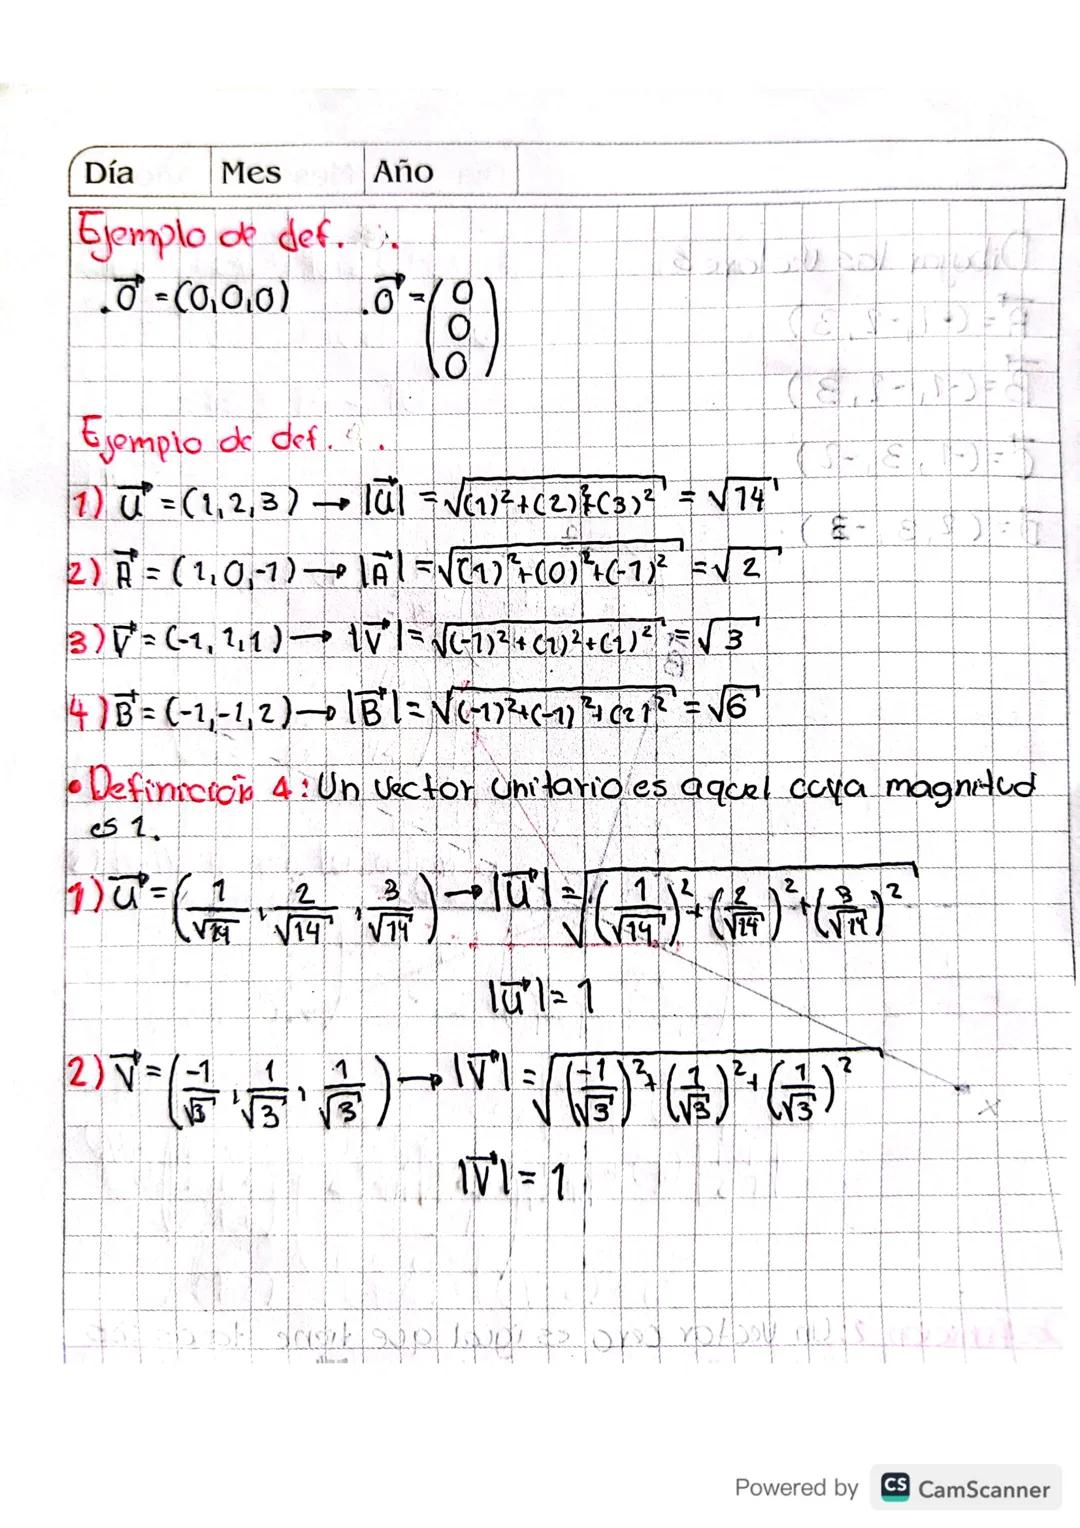 Día Mes Año
Ejemplo de def. :.
. 0⃗ = (0,0,0) . 0⃗ = (0 0 0)
Ejemplo de def. .
1) u⃗ = (1,2,3) → |u⃗| = √(1)²+(2)²+(3)² = √14
2) A⃗ = (1,0,-1) → |A⃗| = √(1)²+(0)²+(-1)² = √2
3) V⃗ = (-1,1,1) → |V⃗| = √(-1)²+(1)²+(1)² = √3
4) B⃗ = (-1,-1,2) → |B⃗| = √(-1)²+(-1)²+(2)² = √6
• Definición 4: Un vector unitario es aquel cuya magnitud
es 1.
1) u⃗ = (1/√14, 2/√14, 3/√14) → |u⃗| = √(1/√14)²+(2/√14)²+(3/√14)²
|u⃗| = 1
2) V⃗ = (-1/√3, 1/√3, 1/√3) → |V⃗| = √(-1/√3)²+(1/√3)²+(1/√3)²
|V⃗| = 1
x
Powered by CS CamScanner